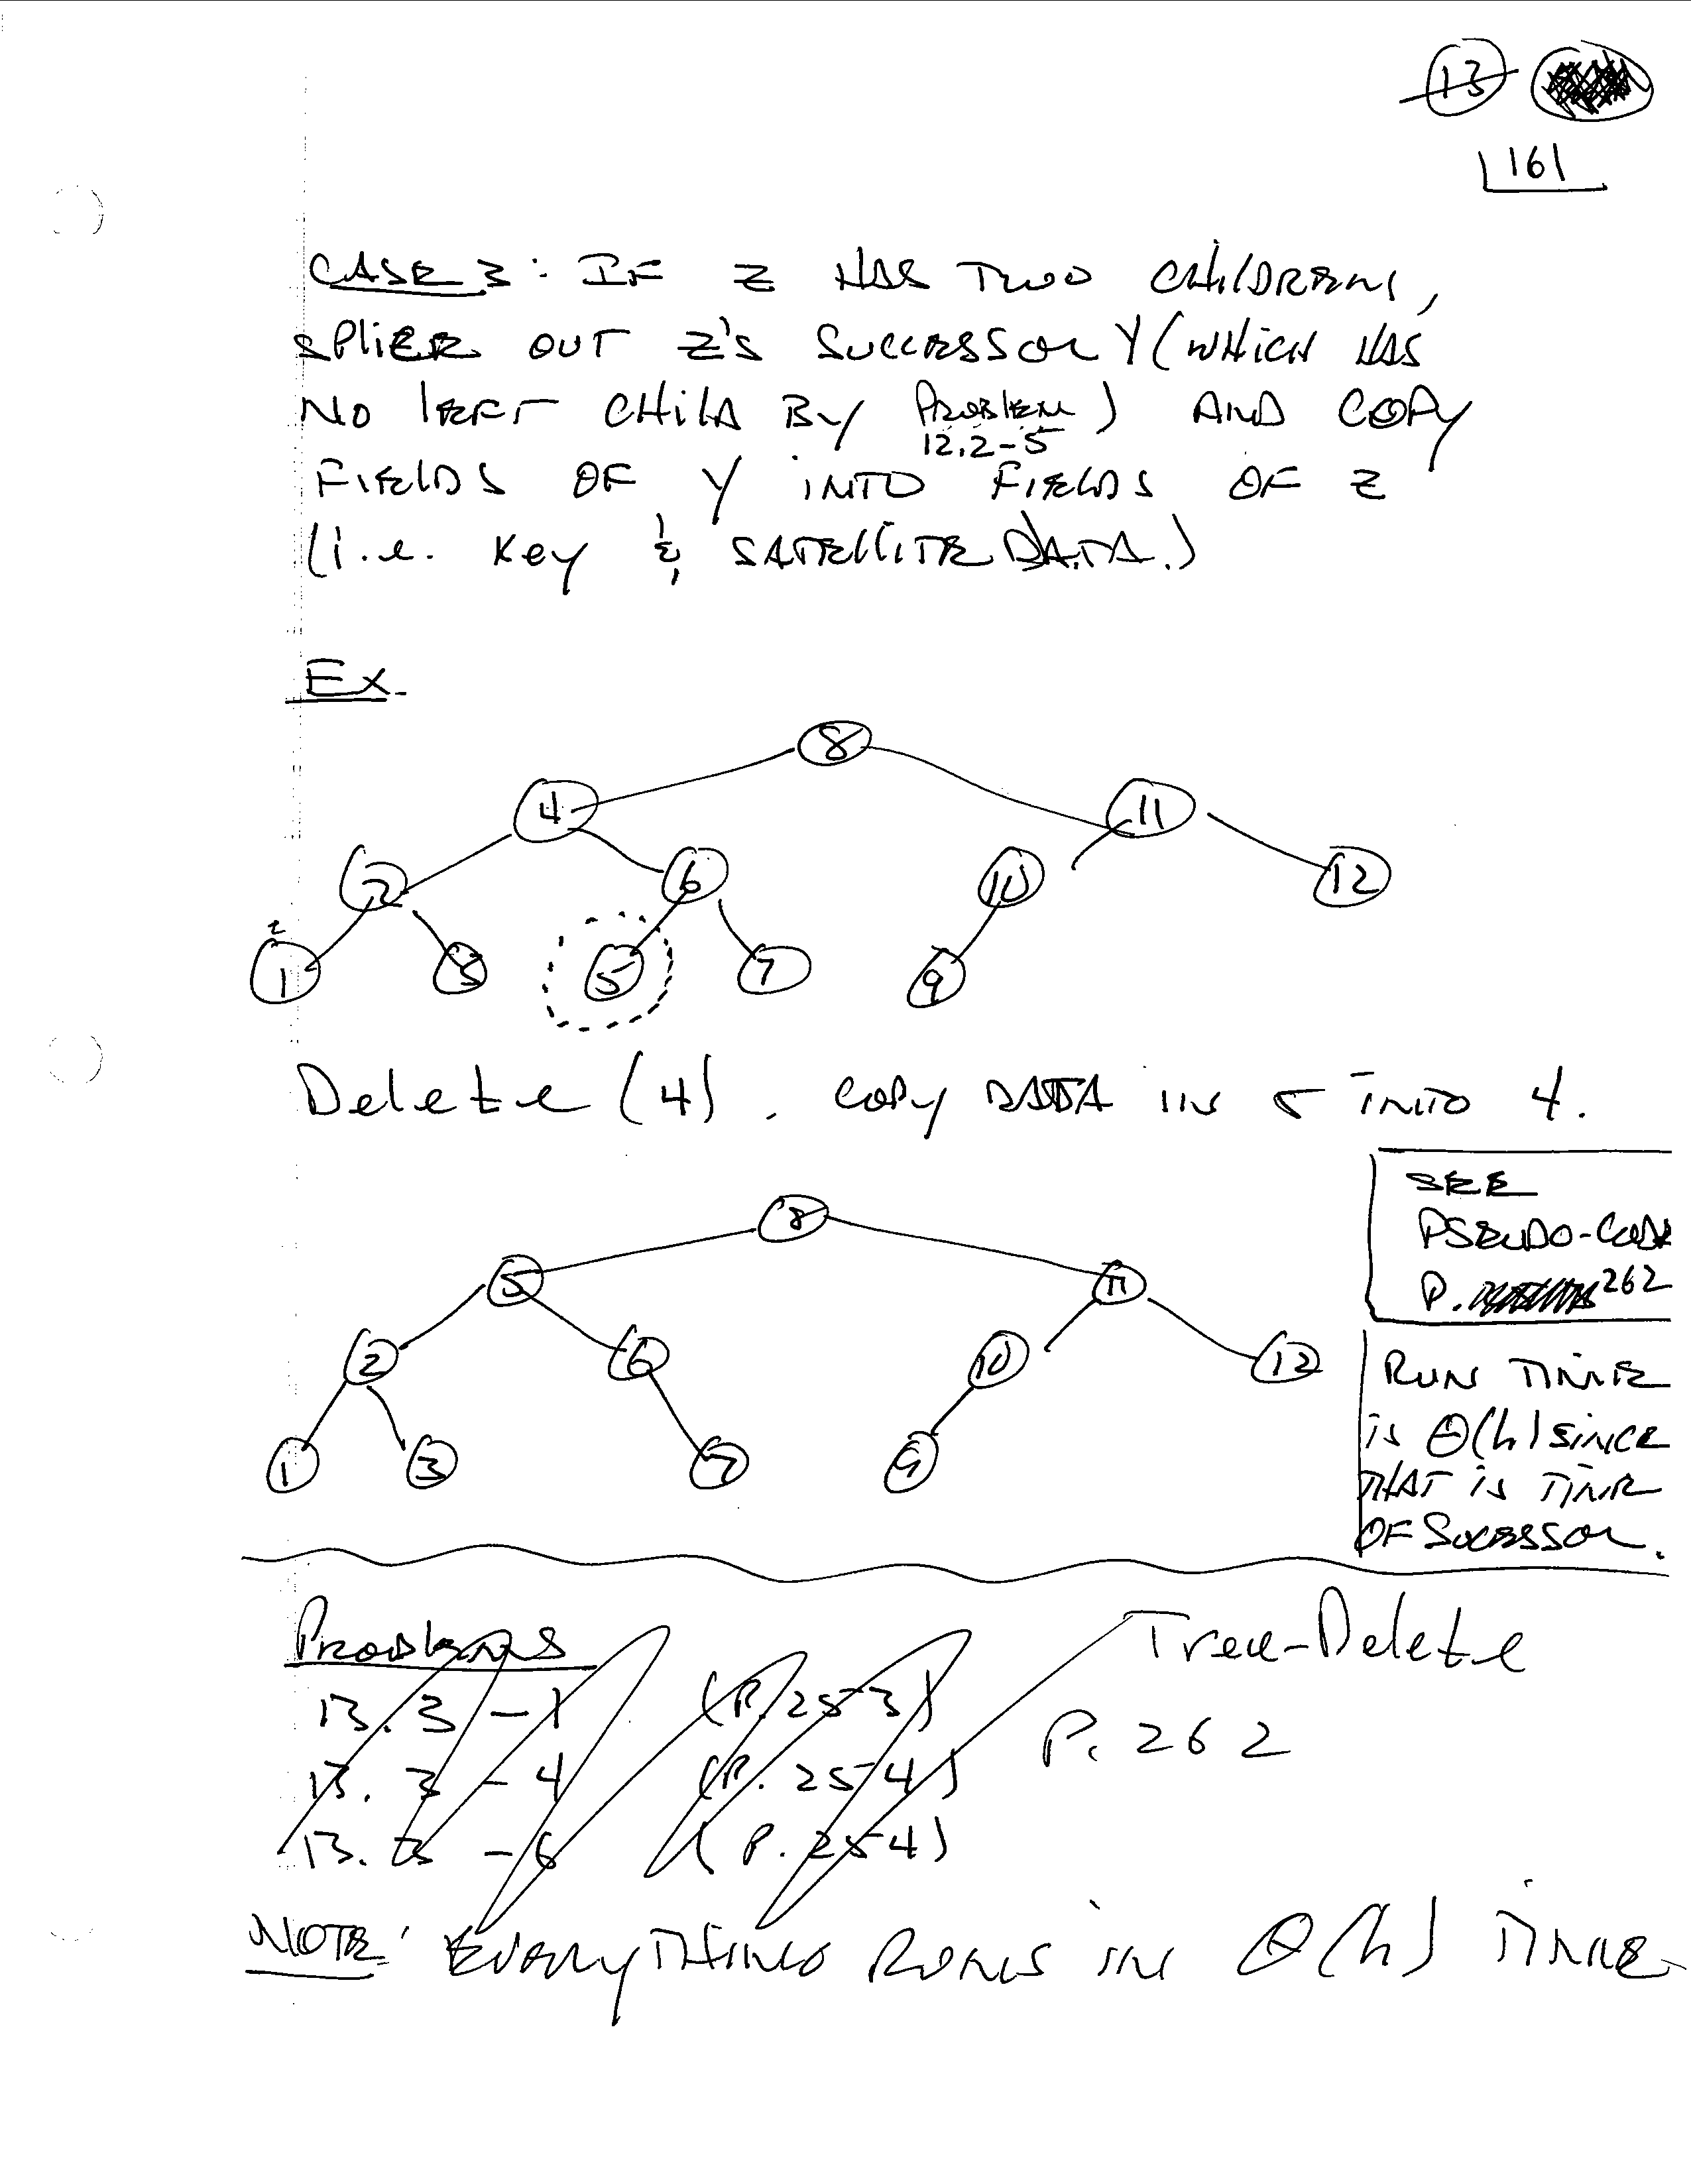 13
161
CASE 3: IF Z HAS TWO CHILDREN,
SPLICE OUT Z'S SUCCESSOR Y (WHICH HAS
NO LEFT CHILD BY PROBLEM 12.2-5) AND COPY
FIELDS OF Y INTO FIELDS OF Z
(i.e. KEY & SATELLITE DATA.)
Ex.
8
4 11
2 6 10 12
1 3 5 7 9
Delete (4). COPY DATA IN 5 INTO 4.
SEE
PSEUDO-CODE
P. 262
8
5 11
2 6 10 12
1 3 7 9
RUN TIME
IS Θ(h) SINCE
THAT IS TIME
OF SUCESSOR.
Problems
13.3-1 (P. 253)
13.3-4 (P. 254)
13.3-6 (P. 254)
Tree-Delete
P. 262
NOTE: EVERYTHING RUNS IN Θ(h) TIME